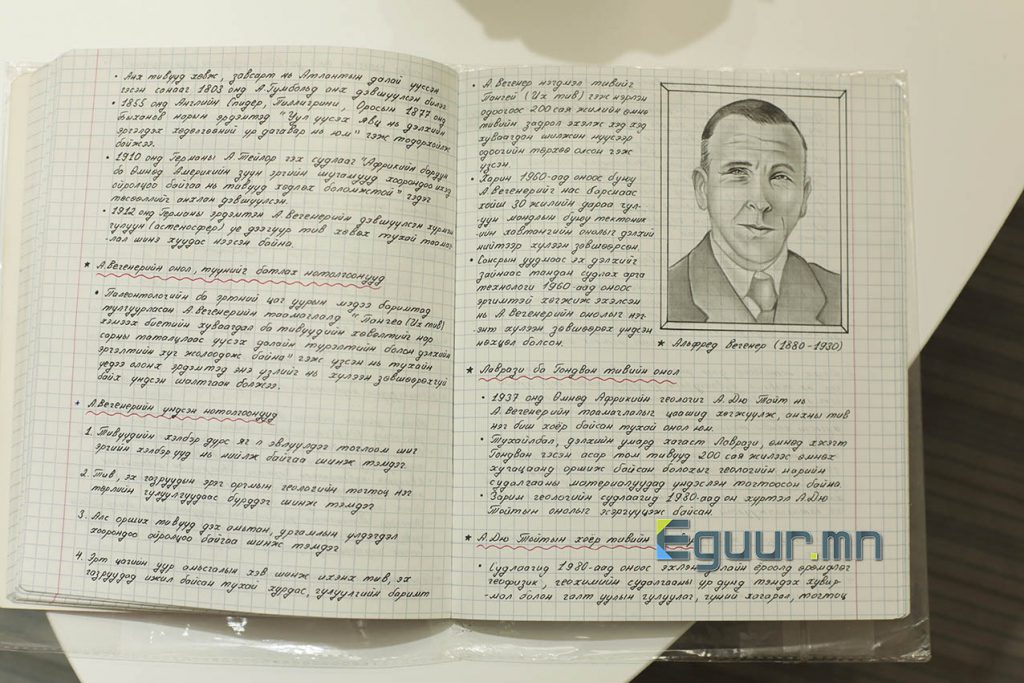 • Анх тивууд хөвж, завсарт нь Атлантын далай үүссэн
гэсэн санааг 1803 онд А.Гумбольд анх дэвшүүлсэн билээ
• 1855 онд Английн Снидер, Пиллигрини, Оросын 1877 онд
Быханов нарын эрдэмтэд "Уул үүсэх явц нь дэлхийн
эргэлдэх хөдөлгөөний үр дагавар нь юм" гэж тодорхойлж
байжээ.
• 1910 онд Германы А.Тейлор гэх судлааг "Африкийн баруун
ба Өмнөд Америкийн зүүн эргийн шугамууд хоорондоо ихэд
ойролцоо байгаа нь тивүүд хөдлөх боломжтой" гэдэг
төсөөллийг анхлан дэвшүүлсэн.
• 1912 онд Германы эрдэмтэн А.Вегенерийн дэвшүүлсэн хүрмэн
чулуун (астеносфер) үе дээгүүр тив хөвөх тухай таамаг-
-лал шинэ хуудас нээсэн байна.
★ А.Вегенерийн онол, түүнийг батлах нотолгоонууд
• Палеонтологийн ба эртний цаг уурын мэдээ баримтад
тулгуурласан А.Вегенерийн таамаглалд "Пангеа (Их тив)
хэмээх биетийн хуваагдал ба тивүүдийн хөвөлтийг нар
сарны таталцлаас үүсэх далайн түрэлтийн болон дэлхийн
эргэлтийн хүч жолооддог байна" гэж үзсэн нь тухайн
үедээ олонх эрдэмтэд энэ үзлийг нь хүлээн зөвшөөрөхгүй
байх үндсэн шалтгаан болжээ.
★ А.Вегенерийн үндсэн нотолгоонууд
1. Тивүүдийн хэлбэр дүрс яг л эвлүүлдэг тоглоом шиг
эргийн хэлбэрүүд нь нийлж байгаа шинж тэмдэг.
2. Тив, эх газруудын эрэг орчмын геологийн тогтоц нэг
төрлийн чулуулгуудаас бүрддэг шинж тэмдэг
3. Алс орших тивүүд дэх амьтан, ургамлын үлдэгдэл
хоорондоо ойролцоо байгаа шинж тэмдэг
4. Эрт цагийн уур амьсгалын хэв шинж ихэнх тив, эх
газруудад ижил байсан тухай хурдас, чулуулгийн баримт
• А.Вегенер нэгдмэл тивийг
Пангей (Их тив) гэж нэрлэн
одоогоос 200 сая жилийн өмнө
тивийн задрал эхэлж хэд хэд
хуваагдан шилжин нүүсээр
одоогийн төрхөө олсон гэж
үзсэн.
• Харин 1960-аад оноос буюу
А.Вегенерийг нас барснаас
хойш 30 жилийн дараа чул-
-уун мандлын буюу тектоник-
-ийн хавтангийн онолыг дэлхий
нийтээр хүлээн зөвшөөрсөн.
• Сонсрын уудмаас эх дэлхийг
зайнаас тандан судлах арга
технологи 1960-аад оноос
эрчимтэй хөгжиж эхэлсэн
нь А.Вегенерийн онолыг нэг-
-энт хүлээн зөвшөөрөх үндсэн
нөхцөл болсон.
★ Альфред Вегенер (1880-1930)
★ Лаврази ба Гондван тивийн онол
• 1937 онд Өмнөд Африкийн геологич А.Дю Тойт нь
А.Вегенерийн таамаглалыг цаашид хөгжүүлж, анхны тив
нэг биш хоёр байсан тухай онол юм.
• Тухайлбал, дэлхийн умард хагаст Лаврази, өмнөд хэсэгт
Гондван гэсэн асар том тивүүд 200 сая жилээс өмнөх
хугацаанд оршиж байсан болохыг геологийн нарийн
судалгааны материалуудад үндэслэн тогтоосон байна.
• Зарим геологийн судлаачид 1980-аад он хүртэл А.Дю
Тойтын онолыг эсэргүүцэж байсан.
★ А.Дю Тойтын хоёр тивийн
Eguur.mn
• Судлаачид 1980-аад оноос эхлэн далайн ёроолд өрөмдлөг
геофизик, геохимийн судалгааны үр дүнд тэндэх хувир-
-мал болон галт уулын чулуулаг, гүний хагарал, тогтоц